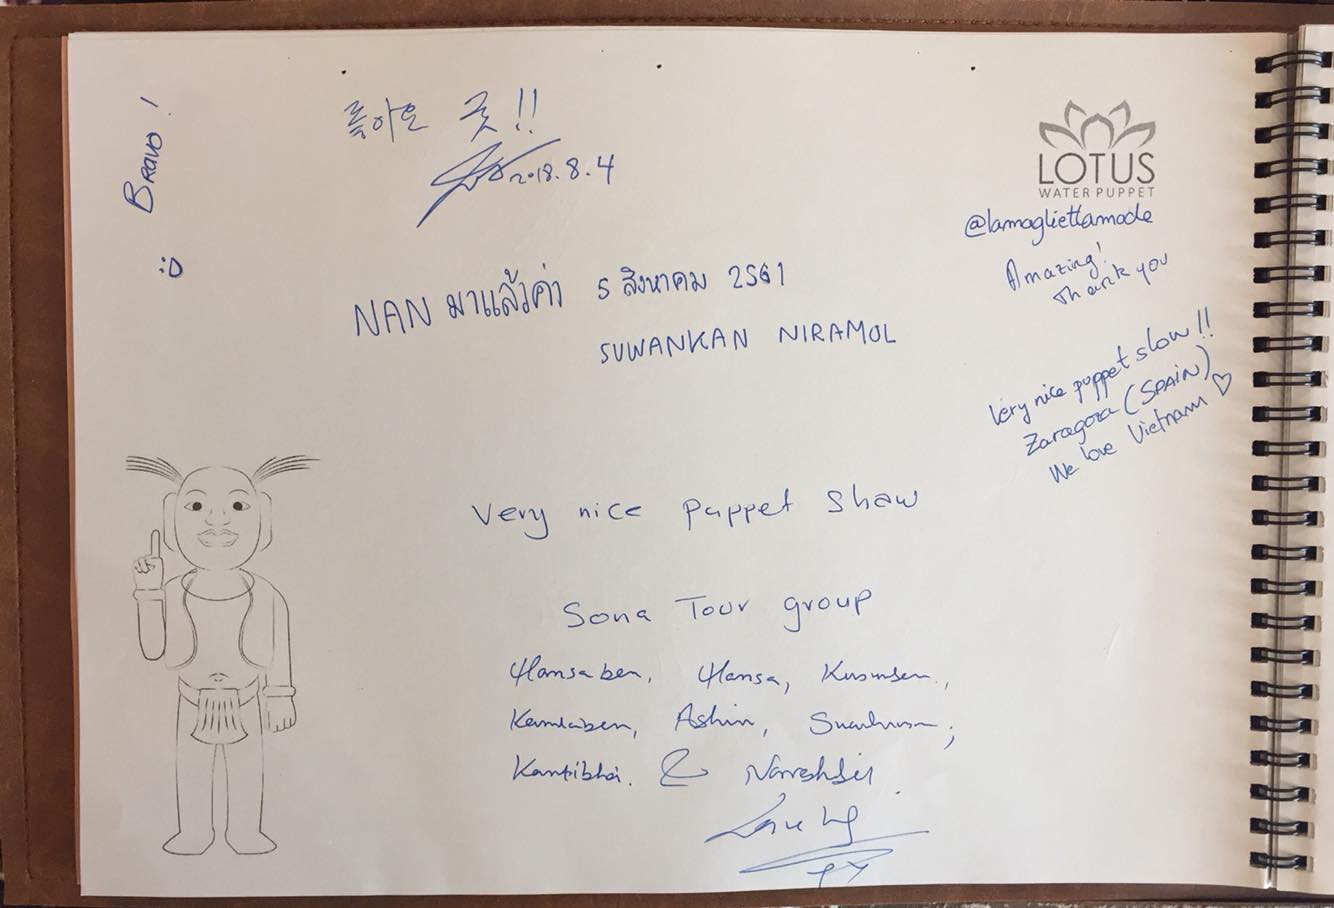 Bravo !
:D
좋아요 굿!!
2018.8.4
LOTUS
WATER PUPPET
@lamagliettamode
Amazing!
Thank you
NAN มาแล้วค่า 5 สิงหาคม 2561
SUWANKAN NIRAMOL
Very nice puppet slow!!
Zaragoza (SPAIN)
We love Vietnam ♡
Very nice puppet shaw
Sona Tour group
Hansaben, Hansa, Kusumben,
Kamlaben, Ashin,
Kantibhai. &